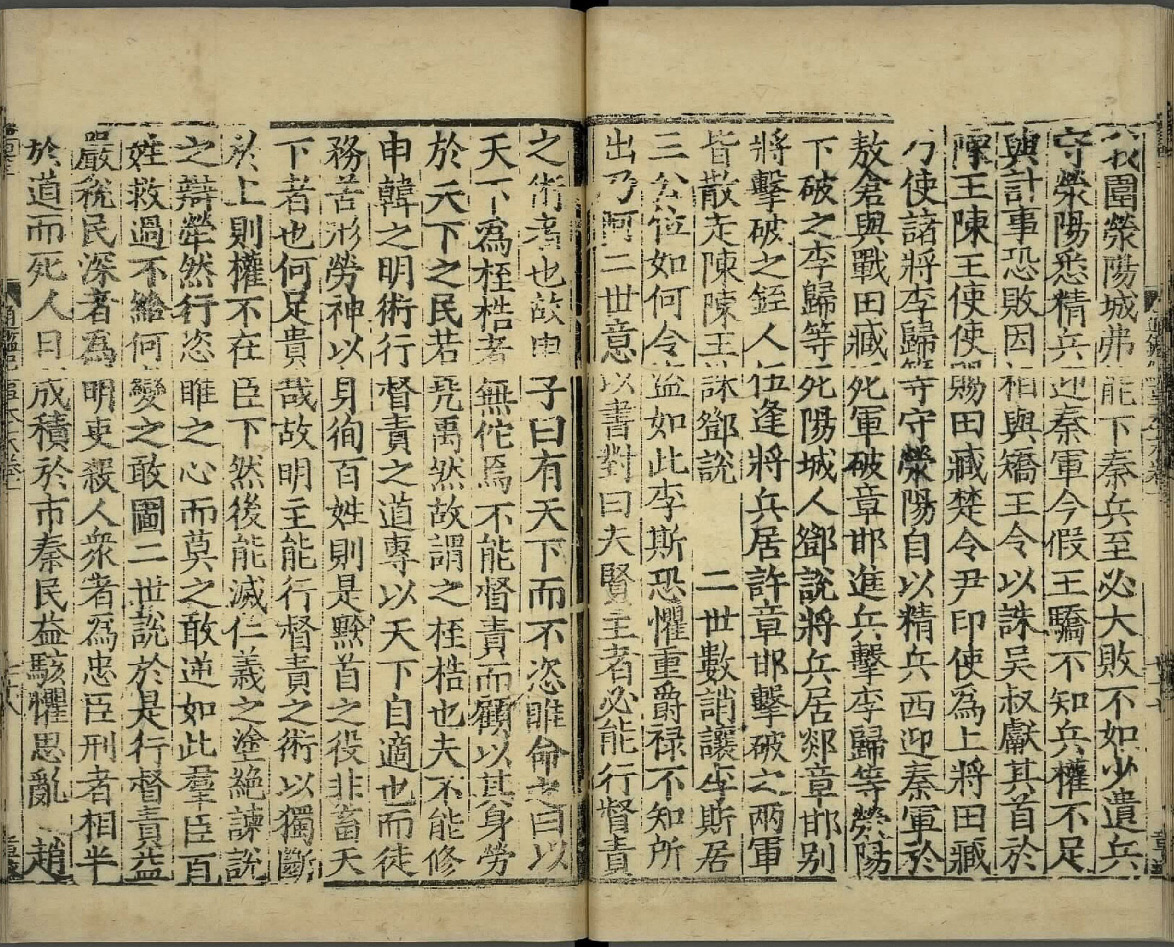 我圍滎陽城弗能下秦兵至必大敗不如少遺兵
守滎陽悉精兵迎秦軍今假王驕不知兵權不足
與計事恐敗因相與矯王令以誅吳叔獻其首於
陳王陳王使使賜田臧楚令尹印使爲上將田臧
乃使諸將李歸等守滎陽自以精兵西迎秦軍於
敖倉與戰田臧死軍破章邯進兵擊李歸等滎陽
下破之李歸等死陽城人鄧說將兵居郯章邯別
將擊破之銍人伍逢將兵居許章邯擊破之两軍
皆散走陳陳王誅鄧說 二世數誚讓李斯居
三公位如何令盗如此李斯恐懼重爵禄不知所
出乃阿二世意以書對曰夫賢主者必能行督責
之術者也故申子曰有天下而不恣睢命之曰以
天下爲桎梏者無佗焉不能督責而顧以其身勞
於天下之民若堯禹然故謂之桎梏也夫不能修
申韓之明術行督責之道專以天下自適也而徒
務苦形勞神以身徇百姓則是黔首之役非畜天
下者也何足貴哉故明主能行督責之術以獨斷
於上則權不在臣下然後能滅仁義之塗絶諫說
之辯犖然行恣睢之心而莫之敢逆如此羣臣百
姓救過不給何變之敢圖二世說於是行督責益
嚴稅民深者爲明吏殺人衆者爲忠臣刑者相半
於道而死人日成積於市秦民益駭懼思亂 趙